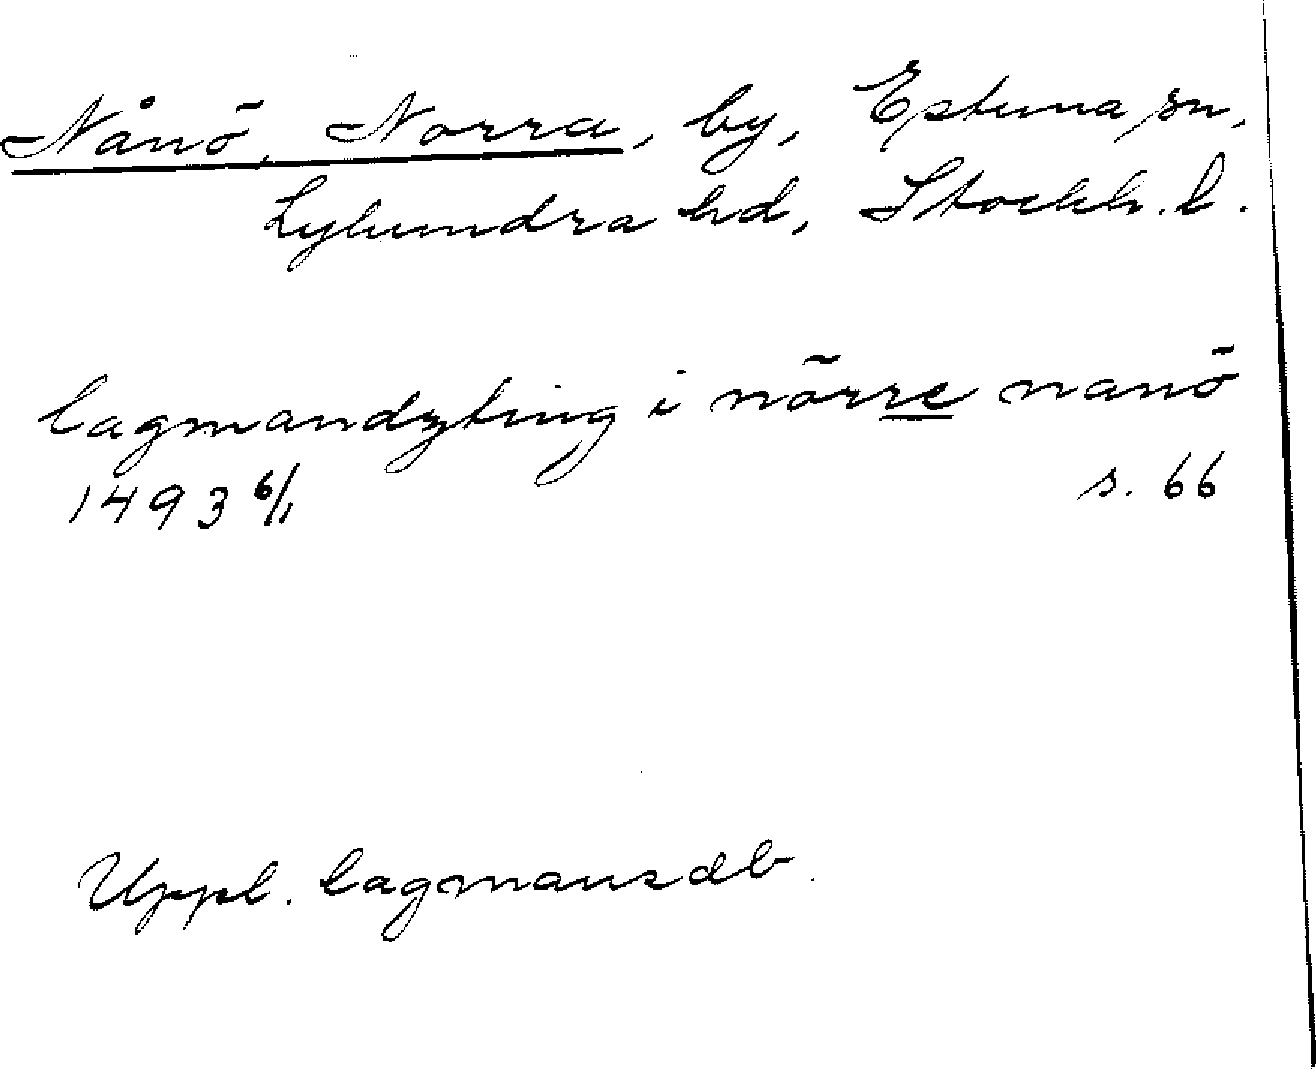 Nånö, Norra, by, Estuna sn,
Lyhundra hd, Stockh. l.
lagmandzting i nörre nanö
1493 6/1 s. 66
Uppl. lagmansdb.